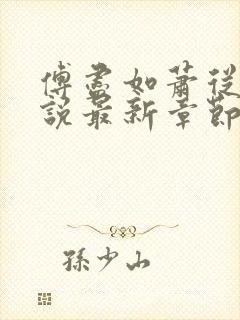 傅盡如蕭從
說最新章節
孫少山